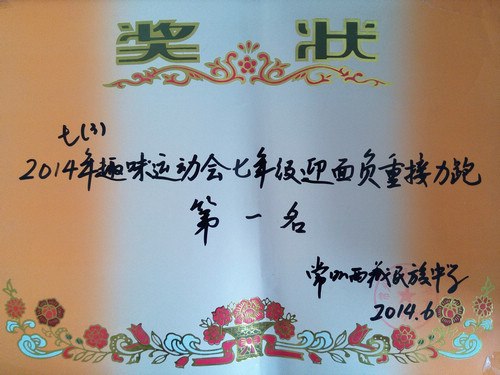 奖状
七(3)
2014年趣味运动会七年级迎面负重接力跑
第一名
常州西藏民族中学
2014.6